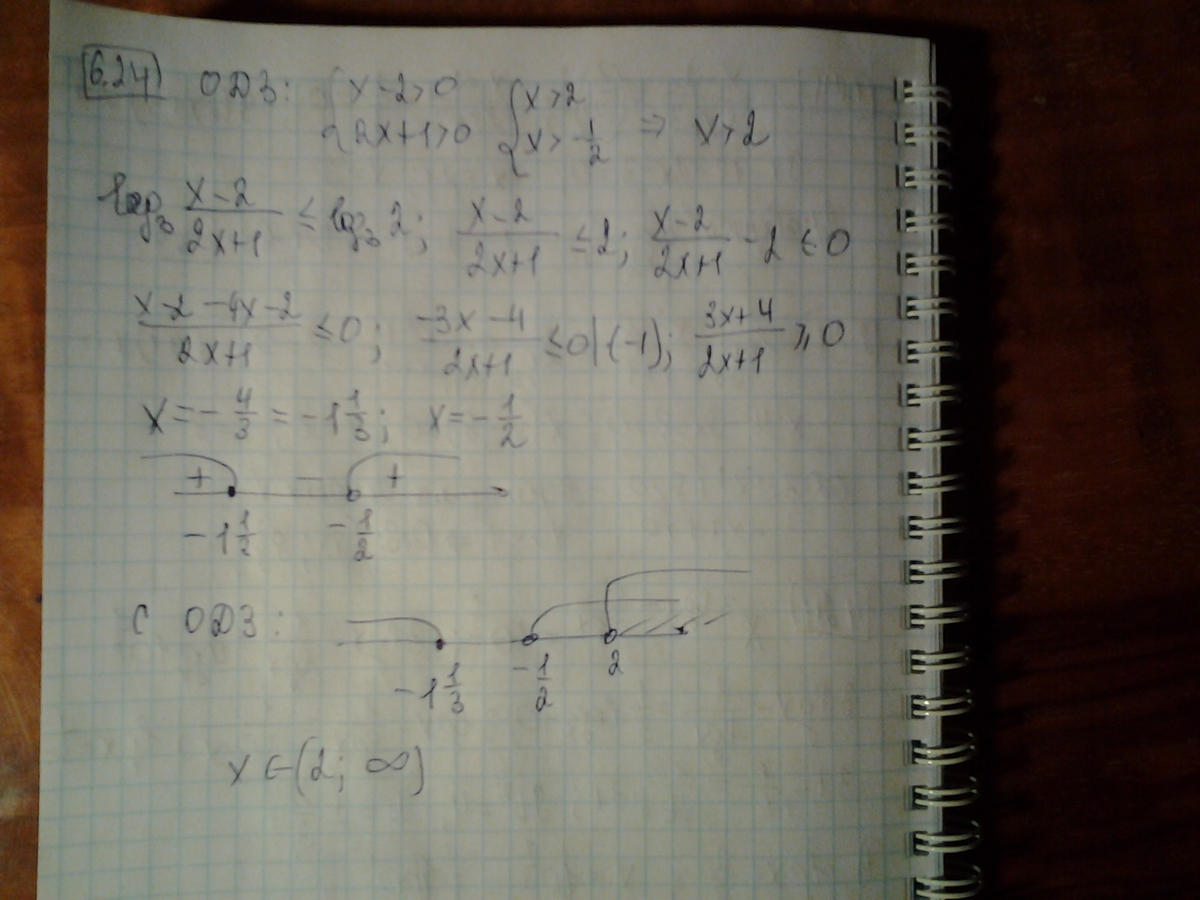 6.24) ОДЗ: { x-2>0 2x+1>0 { x>2 x>-1/2 ⇒ x>2
log₃ (x-2)/(2x+1) ≤ log₃ 2; (x-2)/(2x+1) ≤ 2; (x-2)/(2x+1) - 2 ≤ 0
(x-2-4x-2)/(2x+1) ≤ 0; (-3x-4)/(2x+1) ≤ 0 |·(-1); (3x+4)/(2x+1) ≥ 0
x = -4/3 = -1 1/3; x = -1/2
+ - +
-1 1/3 -1/2
С ОДЗ:
-1 1/3 -1/2 2
x ∈ (2; ∞)